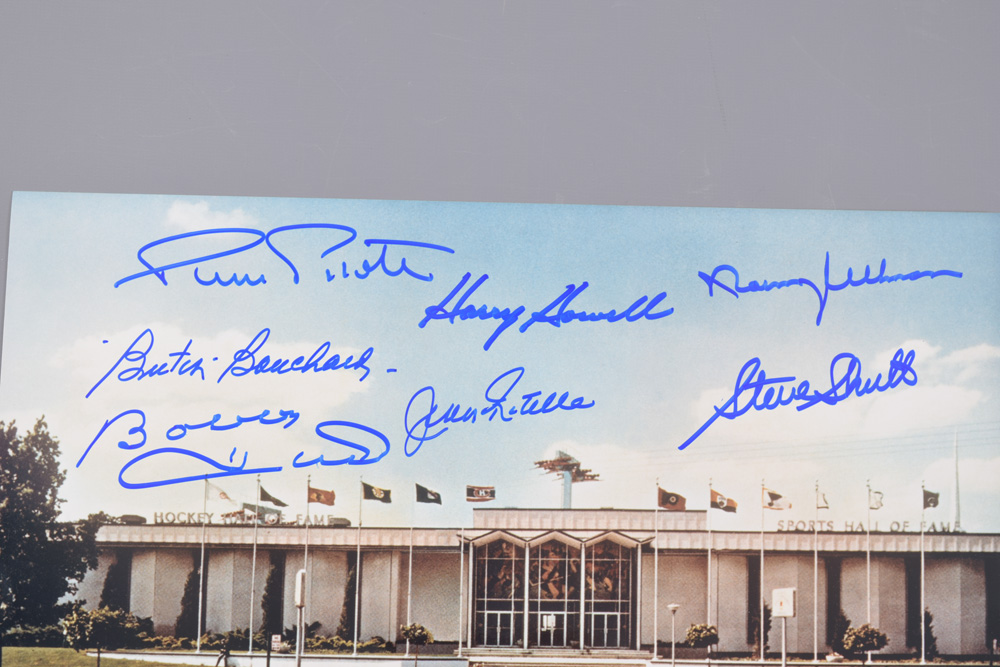 Pierre Pilote
Harry Howell
Norm Ullman
"Butch" Bouchard
Jean Ratelle
Steve Shutt
Bower
HOCKEY HALL OF FAME
SPORTS HALL OF FAME